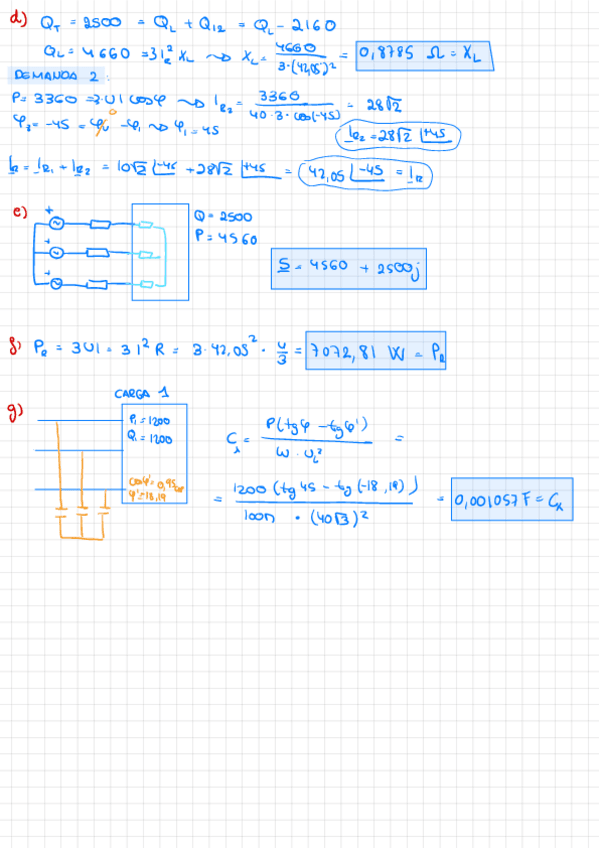 d) Q_T = 2500 = Q_L + Q_12 = Q_L - 2160
Q_L = 4660 = 3 I_R² X_L ⇝ X_L = 4660 / 3·(42,05)² = 0,8785 Ω = X_L
DEMANDA 2:
P = 3360 = 3·U I cosφ ⇝ I_R2 = 3360 / 40·3·cos(-45) = 28√2
φ_2 = -45 = φ_U - φ_I ⇝ φ_I = 45
0
I_R2 = 28√2 |+45
I_R = I_R1 + I_R2 = 10√2 |-45 + 28√2 |+45 = 42,05 |-45 = I_R
e) Q = 2500
P = 4560
S = 4560 + 2500j
+
+
+
f) P_R = 3UI = 3 I² R = 3·42,05² · 4/3 = 7072,81 W = P_R
g) CARGA 1
P_1 = 1200
Q_1 = 1200
cosφ' = 0,95
φ' = 18,19
C_λ = P(tgφ - tgφ') / ω · U_L² =
= 1200 (tg 45 - tg (-18,19)) / 100π · (40√3)² = 0,001057 F = C_λ